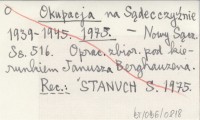 O
Okupacja na Sądecczyźnie
1939-1945. 1975. - Nowy Sącz.
Ss. 516. Oprac. zbior. pod kie-
runkiem Janusza Berghauzena.
Rec.: STANUCH S. 1975.